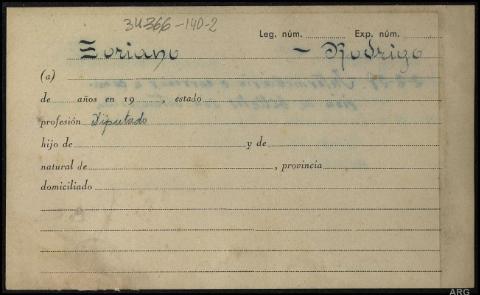 34366-140-2
Leg. núm. Exp. núm.
Soriano - Rodrigo
(a)
de años en 19 , estado
profesión Diputado
hijo de y de
natural de , provincia
domiciliado
ARG